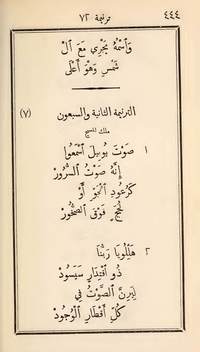 ٤٤٤ ترنيمة ٧٢
وَٱسْمُهُ يَجْرِي مَعَ ٱلْ
شَمْسِ وَهْوَ أَعْلَى
الترنيمة الثانية والسبعون (٧)
ملك المسيح
١ صَوْتَ يُوبِيلَ ٱسْمَعُوا
إِنَّهُ صَوْتُ ٱلسُّرُورْ
كَرُعُودِ ٱلْجَوِّ أَوْ
لُجَجٍ فَوْقَ ٱلصُّخُورْ
٢ هَلِّلُويَا رَبُّنَا
ذُو ٱقْتِدَارٍ سَيَسُودْ
لِيَرِنَّ ٱلصَّوْتُ فِي
كُلِّ أَقْطَارِ ٱلْوُجُودْ